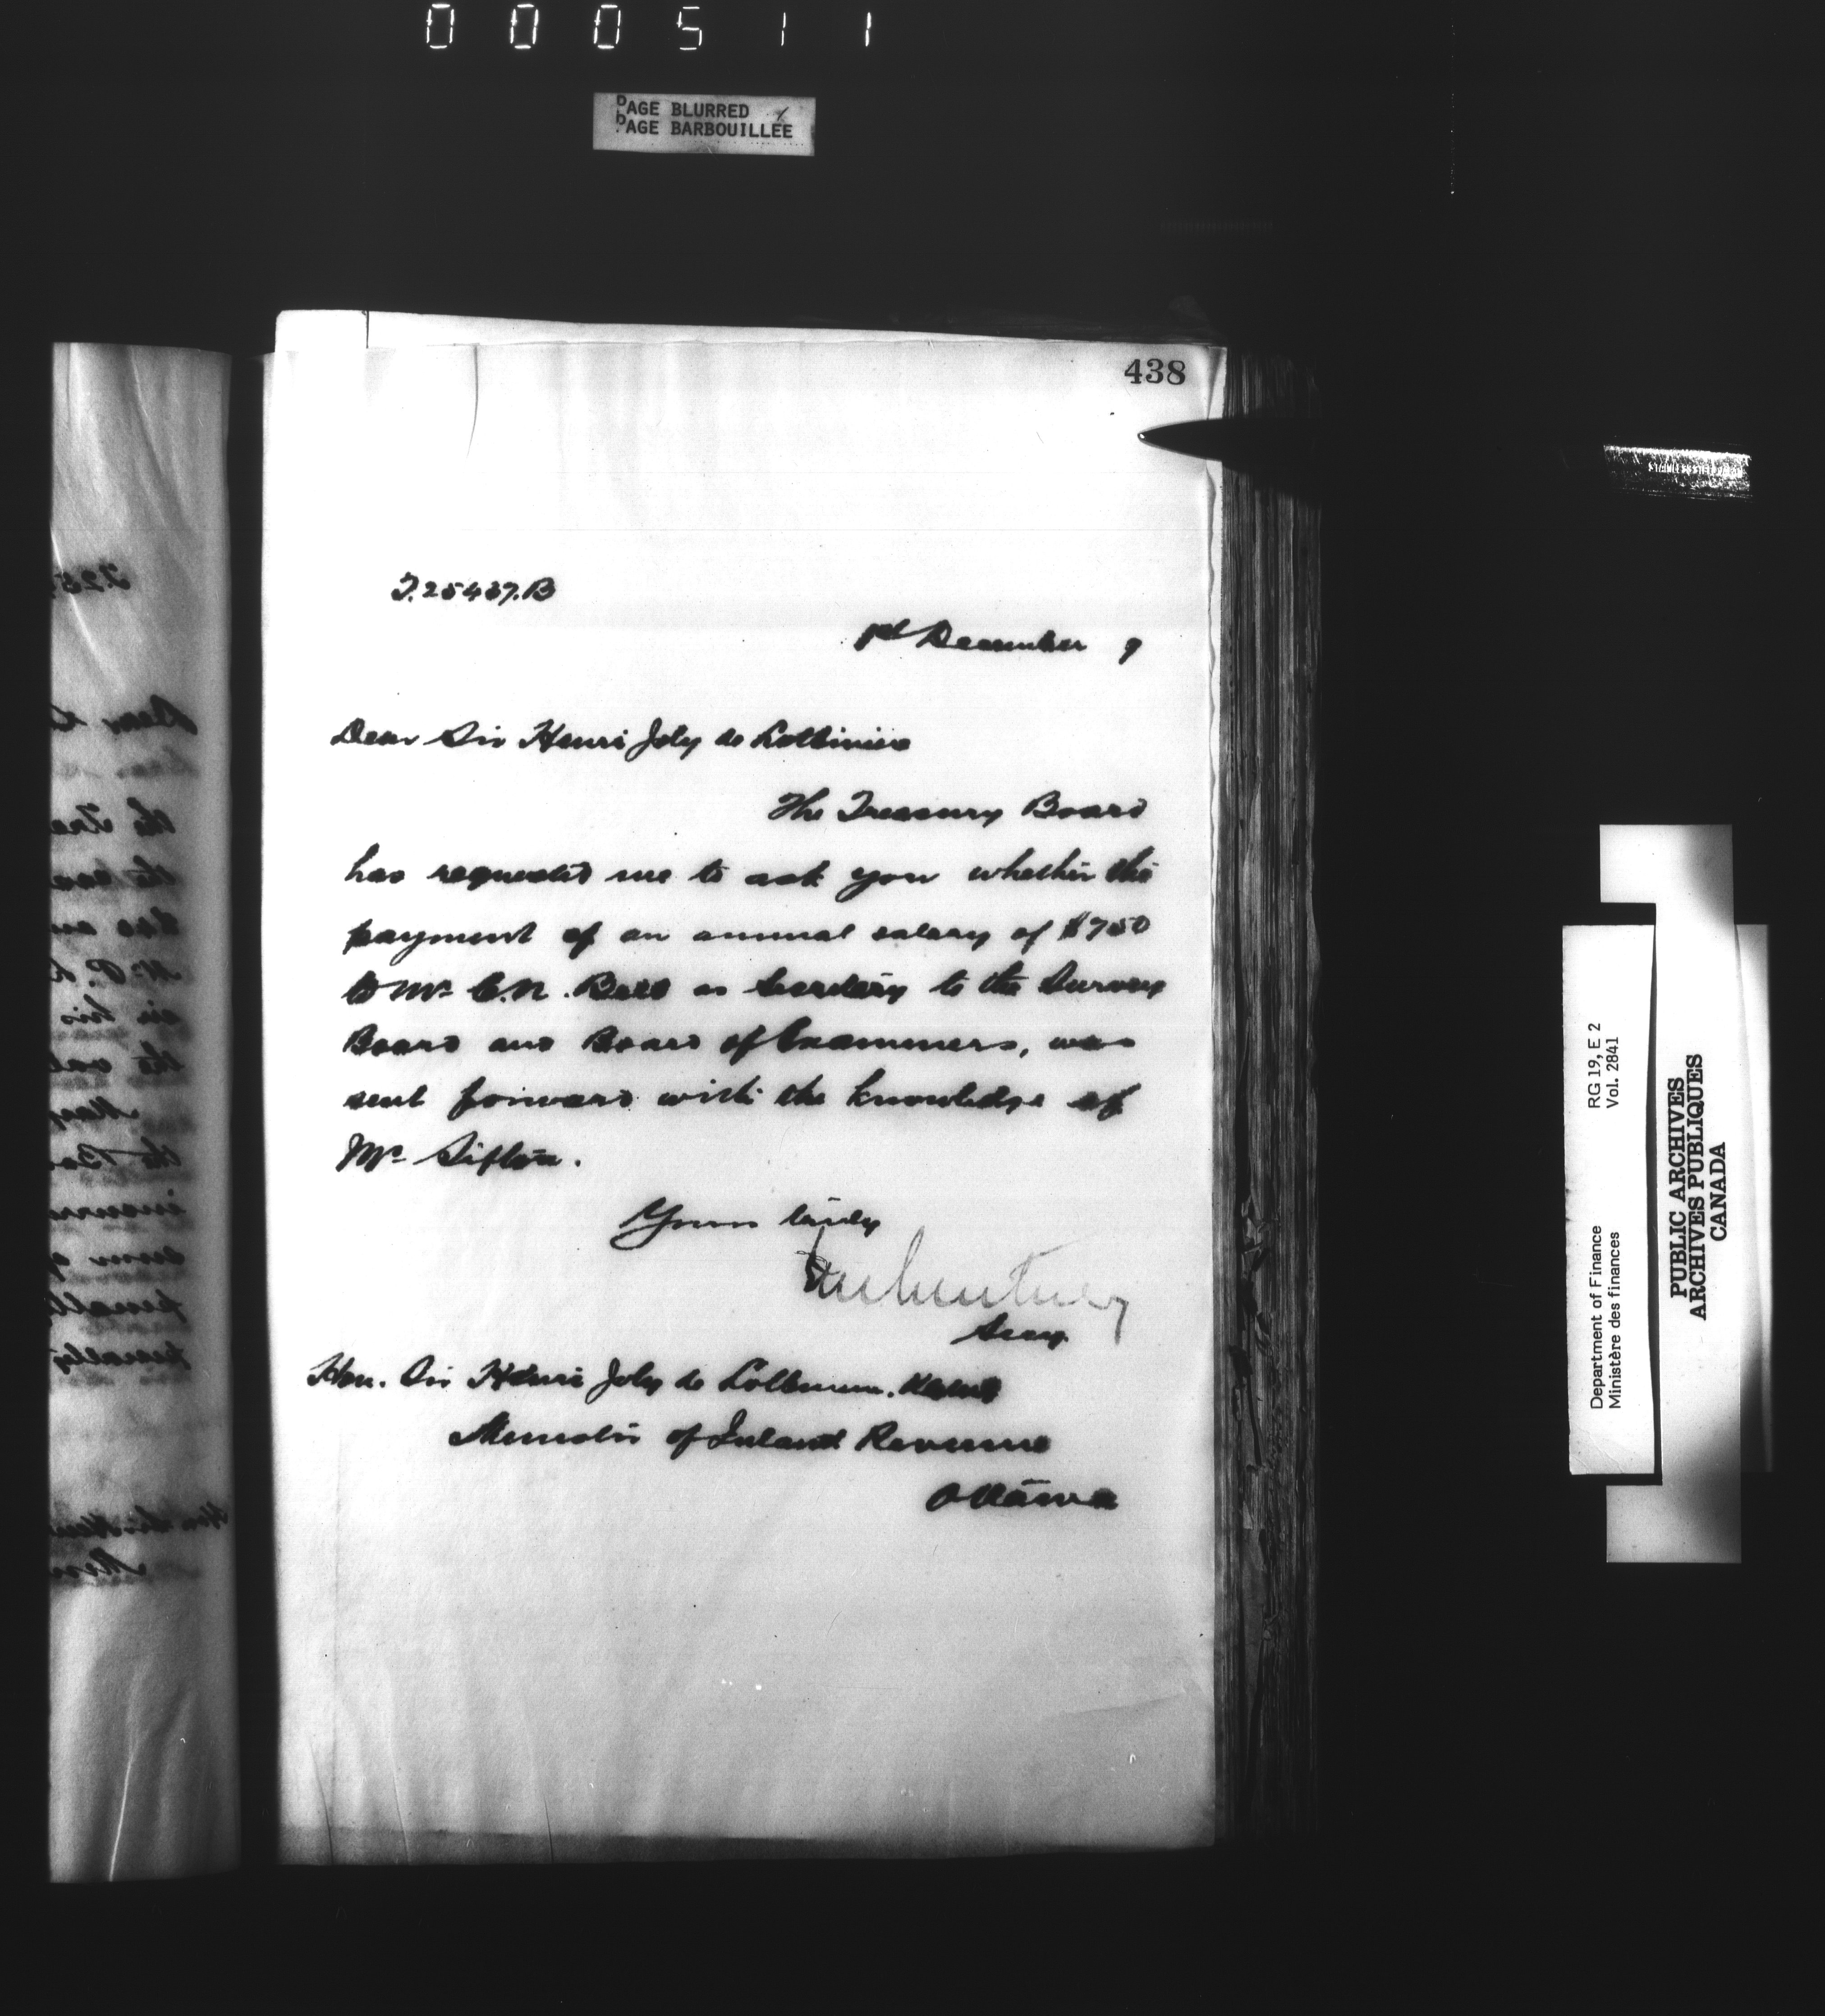 000511
PAGE BLURRED
PAGE BARBOUILLÉE
438
T.25437.B
1st December 9
Dear Sir Henri Joly de Lotbiniere
The Treasury Board
has requested me to ask you whether the
payment of an annual salary of $750
to Mr. C.N. Bell as Secretary to the Survey
Board and Board of Examiners, was
sent forward with the knowledge of
Mr. Sifton.
Yours truly
Secy.
Hon. Sir Henri Joly de Lotbiniere.
Minister of Inland Revenue
Ottawa
RG 19, E 2
Vol. 2841
Department of Finance
Ministère des finances
PUBLIC ARCHIVES
ARCHIVES PUBLIQUES
CANADA